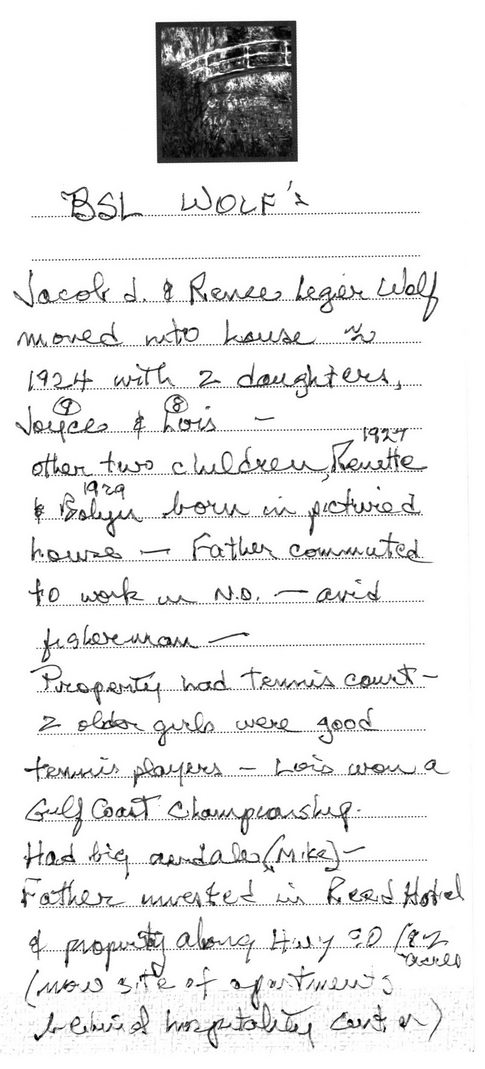 BSL WOLF's
Jacob J. & Renee Legier Wolf
moved into house ≈
1924 with 2 daughters,
(9) (8)
Joyce & Lois —
1927
other two children, Renette
1929
& Robyn born in pictured
house — Father commuted
to work in N.O. — avid
fisherman —
Property had tennis court —
2 older girls were good
tennis players — Lois won a
Gulf Coast Championship.
Had big airedale (Mike) —
Father invested in Reed Hotel
& property along Hwy 90 (92
acres
(now site of apartments
behind hospitality center)